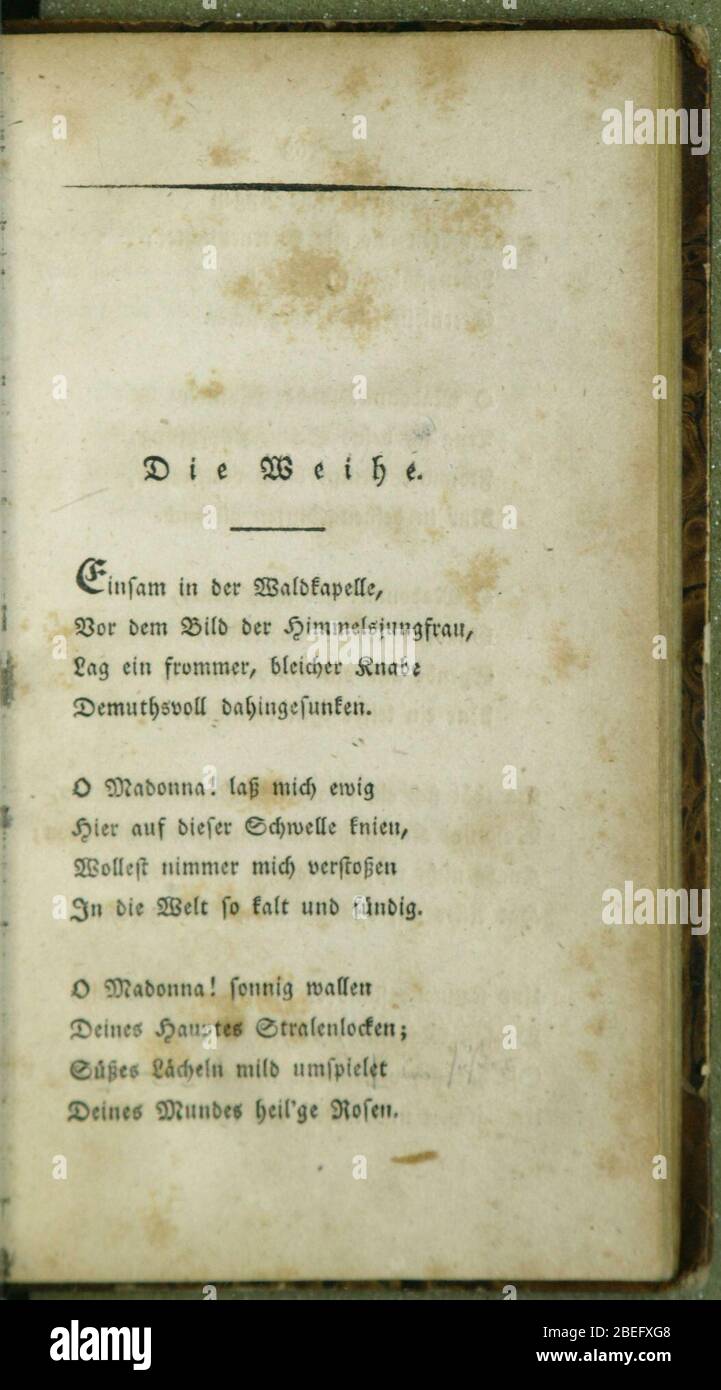 Die Weihe.
Einsam in der Waldkapelle,
Vor dem Bild der Himmelsjungfrau,
Lag ein frommer, bleicher Knabe
Demuthsvoll dahingesunken.
O Madonna! laß mich ewig
Hier auf dieser Schwelle knien,
Wollest nimmer mich verstoßen
In die Welt so kalt und sündig.
O Madonna! sonnig wallen
Deines Hauptes Stralenlocken;
Süßes Lächeln mild umspielet
Deines Mundes heil'ge Rosen.
alamy
alamy
alamy
Image ID: 2BEFXG8
www.alamy.com